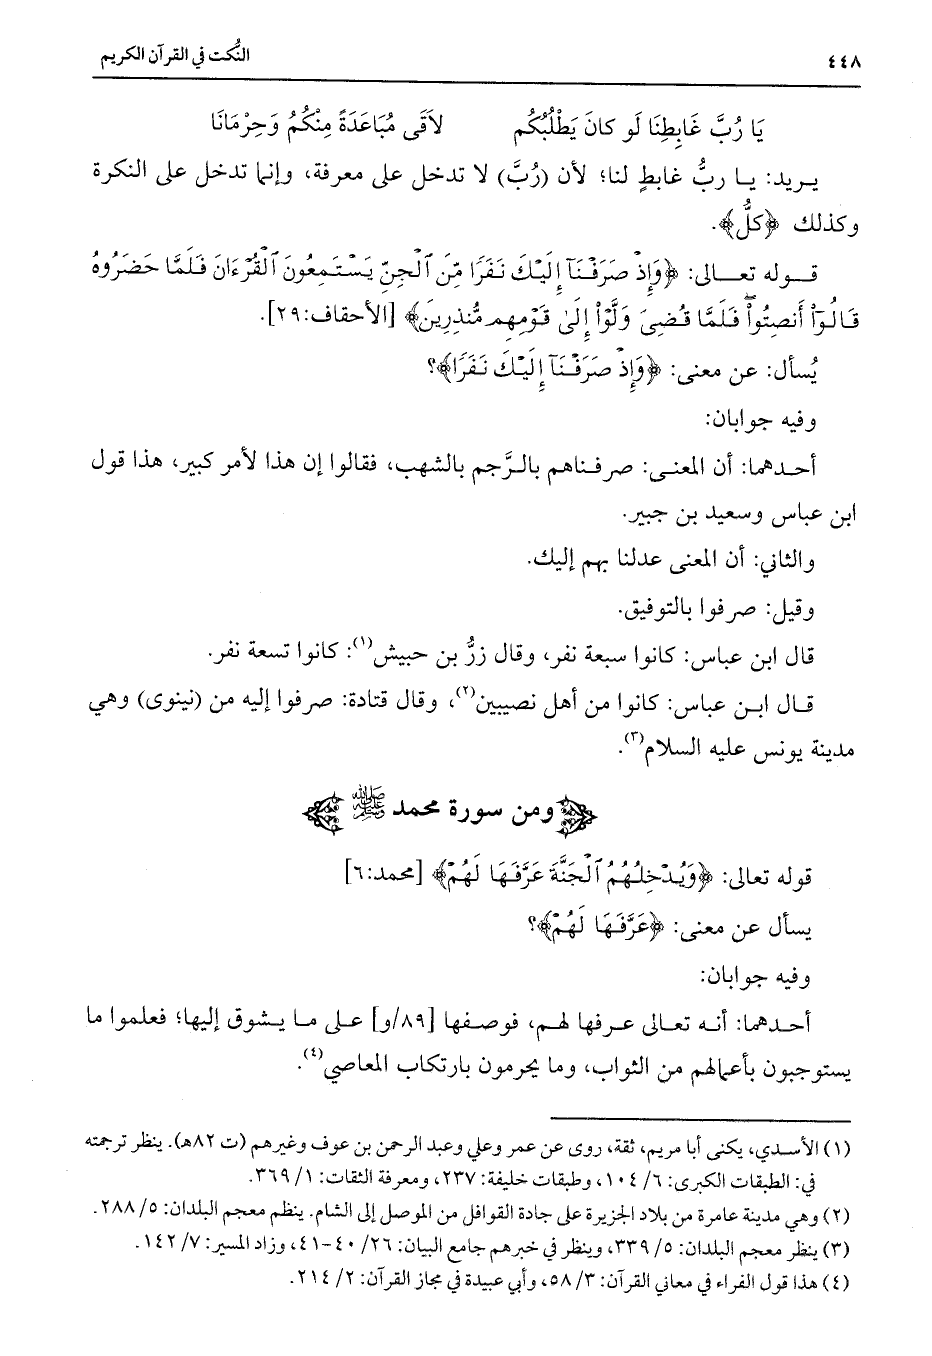 ٤٤٨ النُّكت في القرآن الكريم
يَا رُبَّ غَابِطِنَا لَو كانَ يَطْلُبُكُم لاَقَى مُبَاعَدَةً مِنْكُمُ وَحِرْمَانَا
يريد: يا ربُّ غابطٍ لنا؛ لأن (رُبَّ) لا تدخل على معرفة، وإنما تدخل على النكرة
وكذلك ﴿كلُّ﴾.
قوله تعالى: ﴿وَإِذْ صَرَفْنَآ إِلَيْكَ نَفَرًا مِّنَ ٱلْجِنِّ يَسْتَمِعُونَ ٱلْقُرْءَانَ فَلَمَّا حَضَرُوهُ
قَالُوٓا۟ أَنصِتُوا۟ ۖ فَلَمَّا قُضِىَ وَلَّوْا۟ إِلَىٰ قَوْمِهِم مُّنذِرِينَ﴾ [الأحقاف:٢٩].
يُسأل: عن معنى: ﴿وَإِذْ صَرَفْنَآ إِلَيْكَ نَفَرًا﴾؟
وفيه جوابان:
أحدهما: أن المعنى: صرفناهم بالرَّجم بالشهب، فقالوا إن هذا لأمر كبير، هذا قول
ابن عباس وسعيد بن جبير.
والثاني: أن المعنى عدلنا بهم إليك.
وقيل: صرفوا بالتوفيق.
قال ابن عباس: كانوا سبعة نفر، وقال زرُّ بن حبيش(١): كانوا تسعة نفر.
قال ابن عباس: كانوا من أهل نصيبين(٢)، وقال قتادة: صرفوا إليه من (نينوى) وهي
مدينة يونس عليه السلام(٣).
ومن سورة محمد ﷺ
قوله تعالى: ﴿وَيُدْخِلُهُمُ ٱلْجَنَّةَ عَرَّفَهَا لَهُمْ﴾ [محمد:٦]
يسأل عن معنى: ﴿عَرَّفَهَا لَهُمْ﴾؟
وفيه جوابان:
أحدهما: أنه تعالى عرفها لهم، فوصفها [٨٩/و] على ما يشوق إليها؛ فعلموا ما
يستوجبون بأعمالهم من الثواب، وما يحرمون بارتكاب المعاصي(٤).
(١) الأسدي، يكنى أبا مريم، ثقة، روى عن عمر وعلي وعبد الرحمن بن عوف وغيرهم (ت ٨٢هـ). ينظر ترجمته
في: الطبقات الكبرى: ٦/ ١٠٤، وطبقات خليفة: ٢٣٧، ومعرفة الثقات: ١/ ٣٦٩.
(٢) وهي مدينة عامرة من بلاد الجزيرة على جادة القوافل من الموصل إلى الشام. ينظم معجم البلدان: ٥/ ٢٨٨.
(٣) ينظر معجم البلدان: ٥/ ٣٣٩، وينظر في خبرهم جامع البيان: ٢٦/ ٤٠-٤١، وزاد المسير: ٧/ ١٤٢.
(٤) هذا قول الفراء في معاني القرآن: ٣/ ٥٨، وأبي عبيدة في مجاز القرآن: ٢/ ٢١٤.